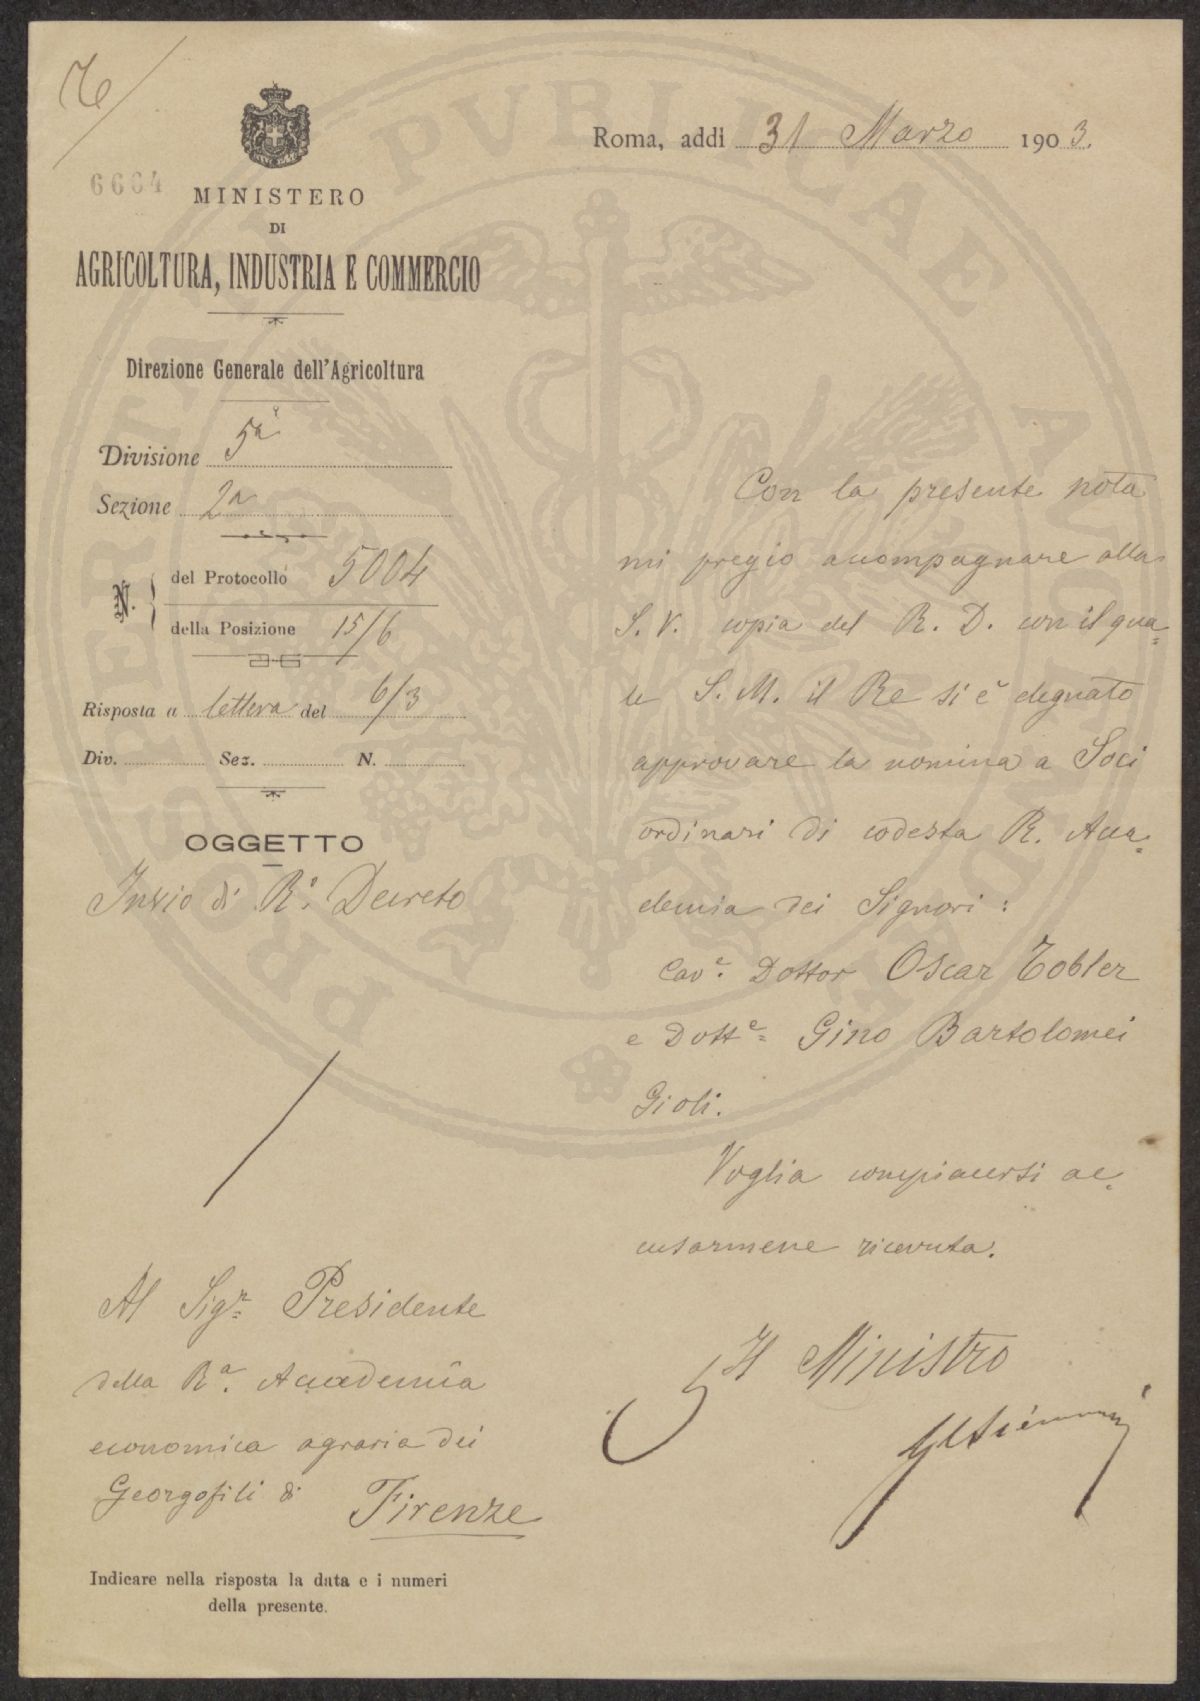 6664
MINISTERO
DI
AGRICOLTURA, INDUSTRIA E COMMERCIO
Direzione Generale dell'Agricoltura
Divisione 5a
Sezione 2a
N. del Protocollo 5004
della Posizione 15/6
Risposta a lettera del 6/3
Div. Sez. N.
OGGETTO
Invio di R.o Decreto
Al Sigr. Presidente
della Ra. Accademia
economica agraria dei
Georgofili di Firenze
Indicare nella risposta la data e i numeri
della presente.
Roma, addi 31 Marzo 1903.
Con la presente nota
mi pregio accompagnare alla
S. V. copia del R. D. con il qua=
le S. M. il Re si è degnato
approvare la nomina a Soci
ordinari di codesta R. Acca=
demia dei Signori:
Cavr. Dottor Oscar Tobler
e Dotte. Gino Bartolomei
Gioli.
Voglia compiacersi ac=
cusarmene ricevuta.
Il Ministro
PROSPERITATI PVBLICAE AVGENDAE